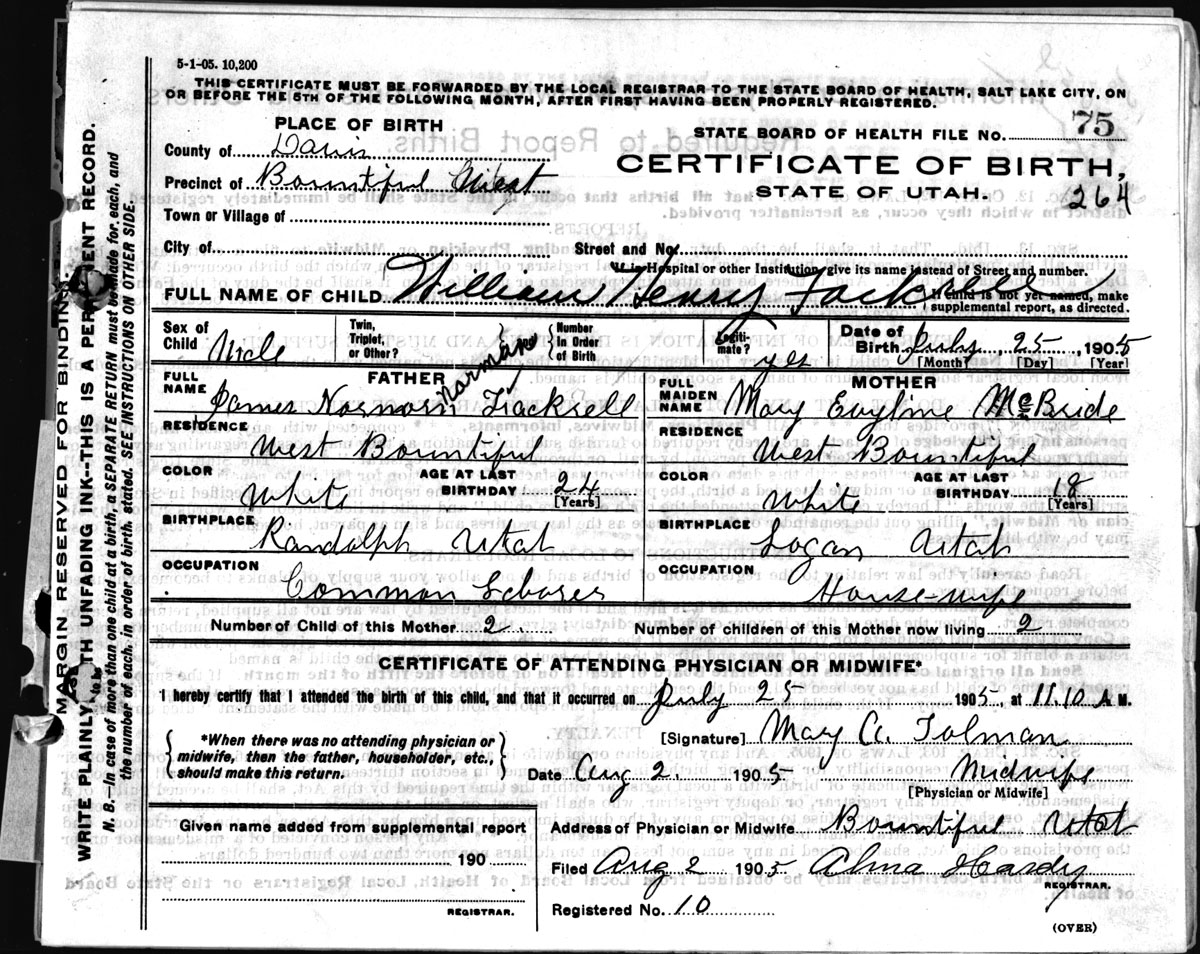 5-1-05. 10,200
THIS CERTIFICATE MUST BE FORWARDED BY THE LOCAL REGISTRAR TO THE STATE BOARD OF HEALTH, SALT LAKE CITY, ON
OR BEFORE THE 5TH OF THE FOLLOWING MONTH, AFTER FIRST HAVING BEEN PROPERLY REGISTERED.
PLACE OF BIRTH
County of Davis
Precinct of Bountiful West
Town or Village of
City of
STATE BOARD OF HEALTH FILE NO. 75
CERTIFICATE OF BIRTH,
STATE OF UTAH.
264
Street and No.
If in Hospital or other Institution give its name instead of Street and number.
FULL NAME OF CHILD William Henry Fackrell
If child is not yet named, make
supplemental report, as directed.
Sex of Child Male
Twin, Triplet, or Other?
Number in Order of Birth
Legitimate? yes
Date of Birth July 25, 1905
[Month] [Day] [Year]
FATHER
FULL NAME James Normorn Fackrell
Norman
RESIDENCE
West Bountiful
COLOR White
AGE AT LAST BIRTHDAY 24
[Years]
BIRTHPLACE
Randolph Utah
OCCUPATION
Common Laborer
MOTHER
FULL MAIDEN NAME Mary Evyline McBride
RESIDENCE
West Bountiful
COLOR White
AGE AT LAST BIRTHDAY 18
[Years]
BIRTHPLACE
Logan Utah
OCCUPATION
House-wife
Number of Child of this Mother 2
Number of children of this Mother now living 2
CERTIFICATE OF ATTENDING PHYSICIAN OR MIDWIFE*
I hereby certify that I attended the birth of this child, and that it occurred on July 25 1905, at 11.10 A M.
*When there was no attending physician or
midwife, then the father, householder, etc.,
should make this return.
[Signature] Mary A. Tolman
Date Aug 2. 1905 Midwife
[Physician or Midwife]
Given name added from supplemental report
190
REGISTRAR.
Address of Physician or Midwife Bountiful Utah
Filed Aug 2 1905 Alma Hardy
REGISTRAR.
Registered No. 10
(OVER)
MARGIN RESERVED FOR BINDING.
WRITE PLAINLY WITH UNFADING INK--THIS IS A PERMANENT RECORD.
N. B.--In case of more than one child at a birth, a SEPARATE RETURN must be made for each, and
the number of each, in order of birth, stated. SEE INSTRUCTIONS ON OTHER SIDE.